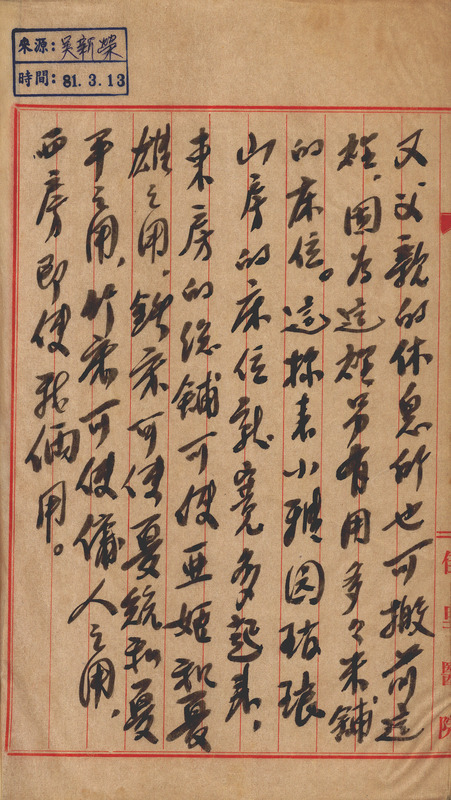 來源:吳新榮
時間:81.3.13
又父親的休息所也可搬前這
裡,因為這裡另有用多々來鋪
的床位。這樣來小雅園琑琅
山房的床位就寬多起來,
東房的總鋪可使亞姬和夏
雄之用,鉄床可使夏統和夏
平之用,竹床可使傭人之用,
西房即使我倆用。
佳里醫院